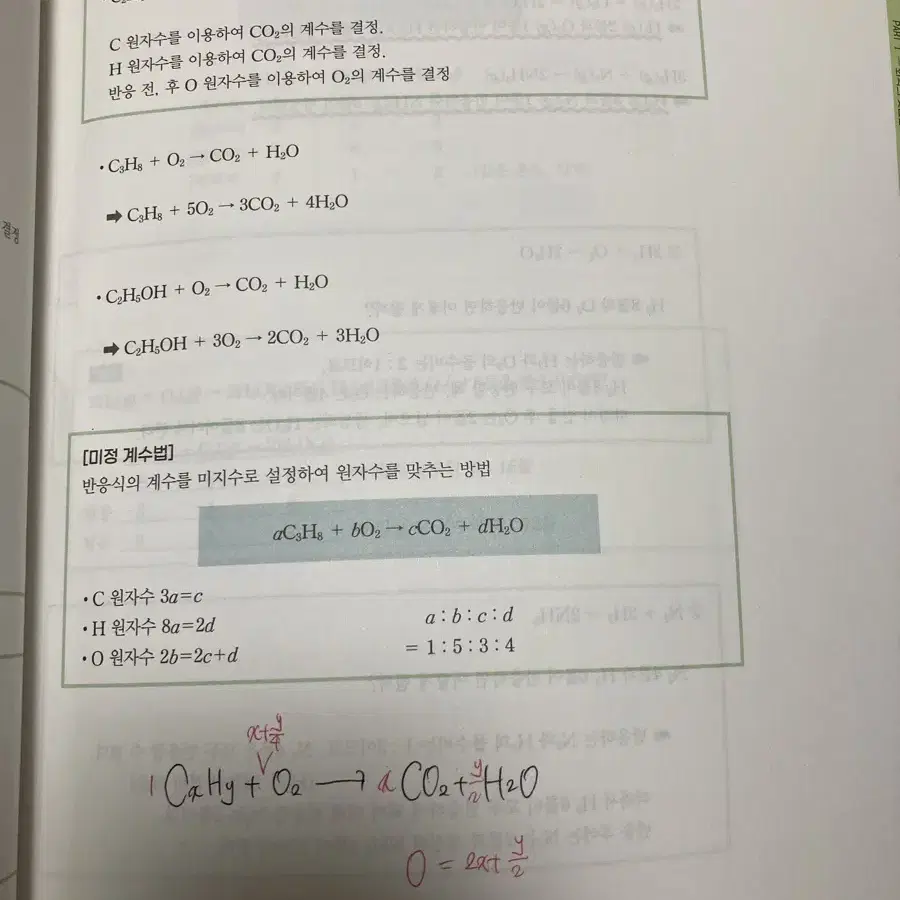 C 원자수를 이용하여 CO₂의 계수를 결정.
H 원자수를 이용하여 CO₂의 계수를 결정.
반응 전, 후 O 원자수를 이용하여 O₂의 계수를 결정
• C₃H₈ + O₂ → CO₂ + H₂O
➡ C₃H₈ + 5O₂ → 3CO₂ + 4H₂O
결정
• C₂H₅OH + O₂ → CO₂ + H₂O
➡ C₂H₅OH + 3O₂ → 2CO₂ + 3H₂O
[미정 계수법]
반응식의 계수를 미지수로 설정하여 원자수를 맞추는 방법
aC₃H₈ + bO₂ → cCO₂ + dH₂O
• C 원자수 3a=c
• H 원자수 8a=2d
• O 원자수 2b=2c+d
a : b : c : d
= 1 : 5 : 3 : 4
x+y/4
1 CxHy + O₂ → x CO₂ + y/2 H₂O
O = 2x+y/2